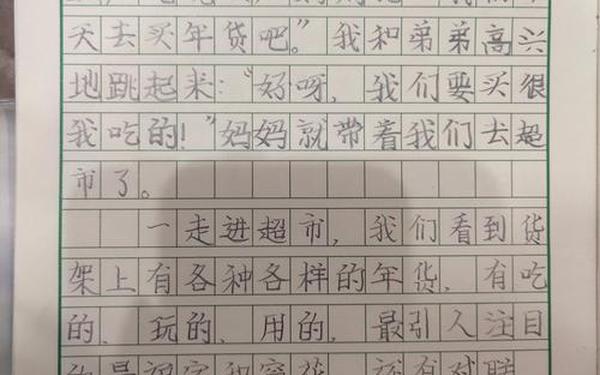 天去买年货吧。”我和弟弟高兴
地跳起来:“好呀,我们要买很
我吃的!”妈妈就带着我们去超
市了。
一走进超市,我们看到货
架上有各种各样的年货,有吃
的、玩的、用的,最引人注目
的是福字和窗花,还有对联